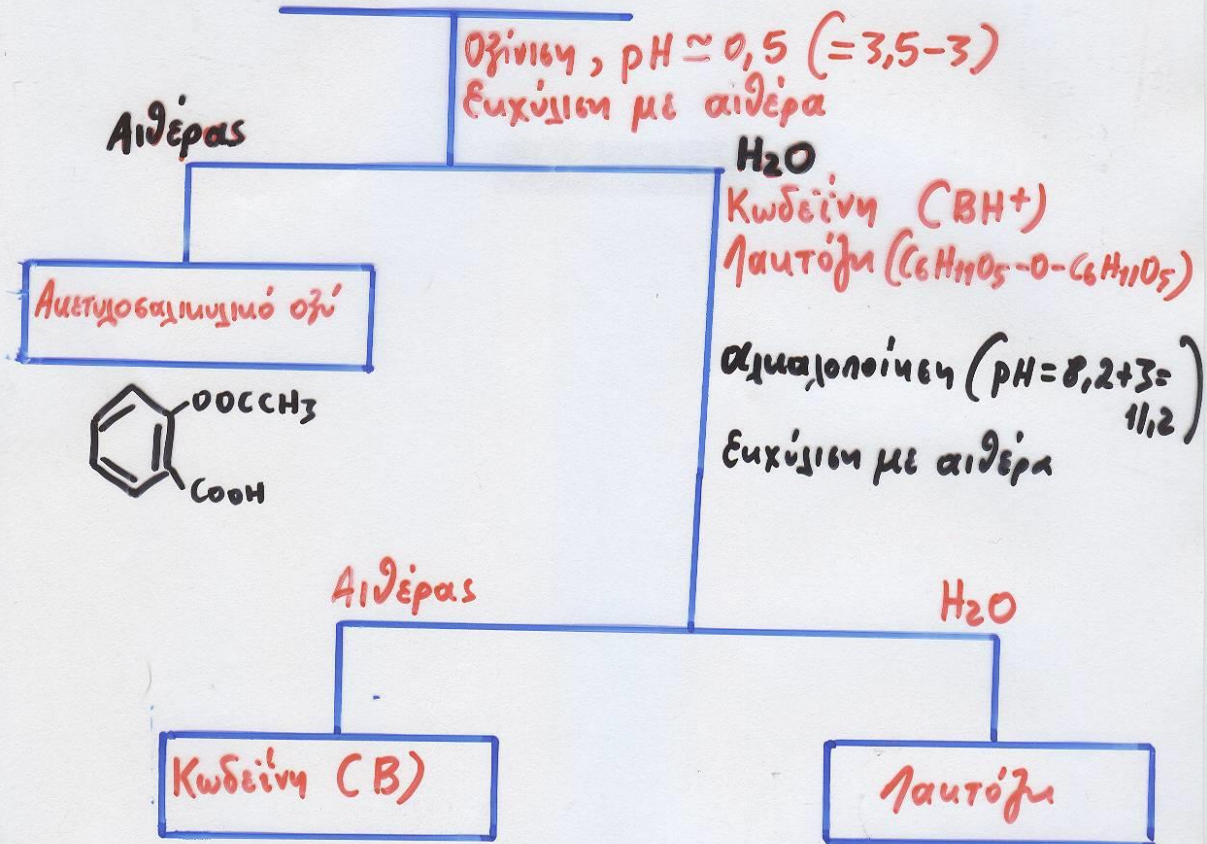 Οξίνιση, pH ≃ 0,5 (=3,5-3)
Εκχύλιση με αιθέρα
Αιθέρας
H2O
Κωδεΐνη (BH+)
Λακτόζη (C6H11O5-O-C6H11O5)
Ακετυλοσαλικυλικό οξύ
OOCCH3
COOH
αλκαλοποίηση (pH=8,2+3=
11,2)
Εκχύλιση με αιθέρα
Αιθέρας
H2O
Κωδεΐνη (B)
Λακτόζη